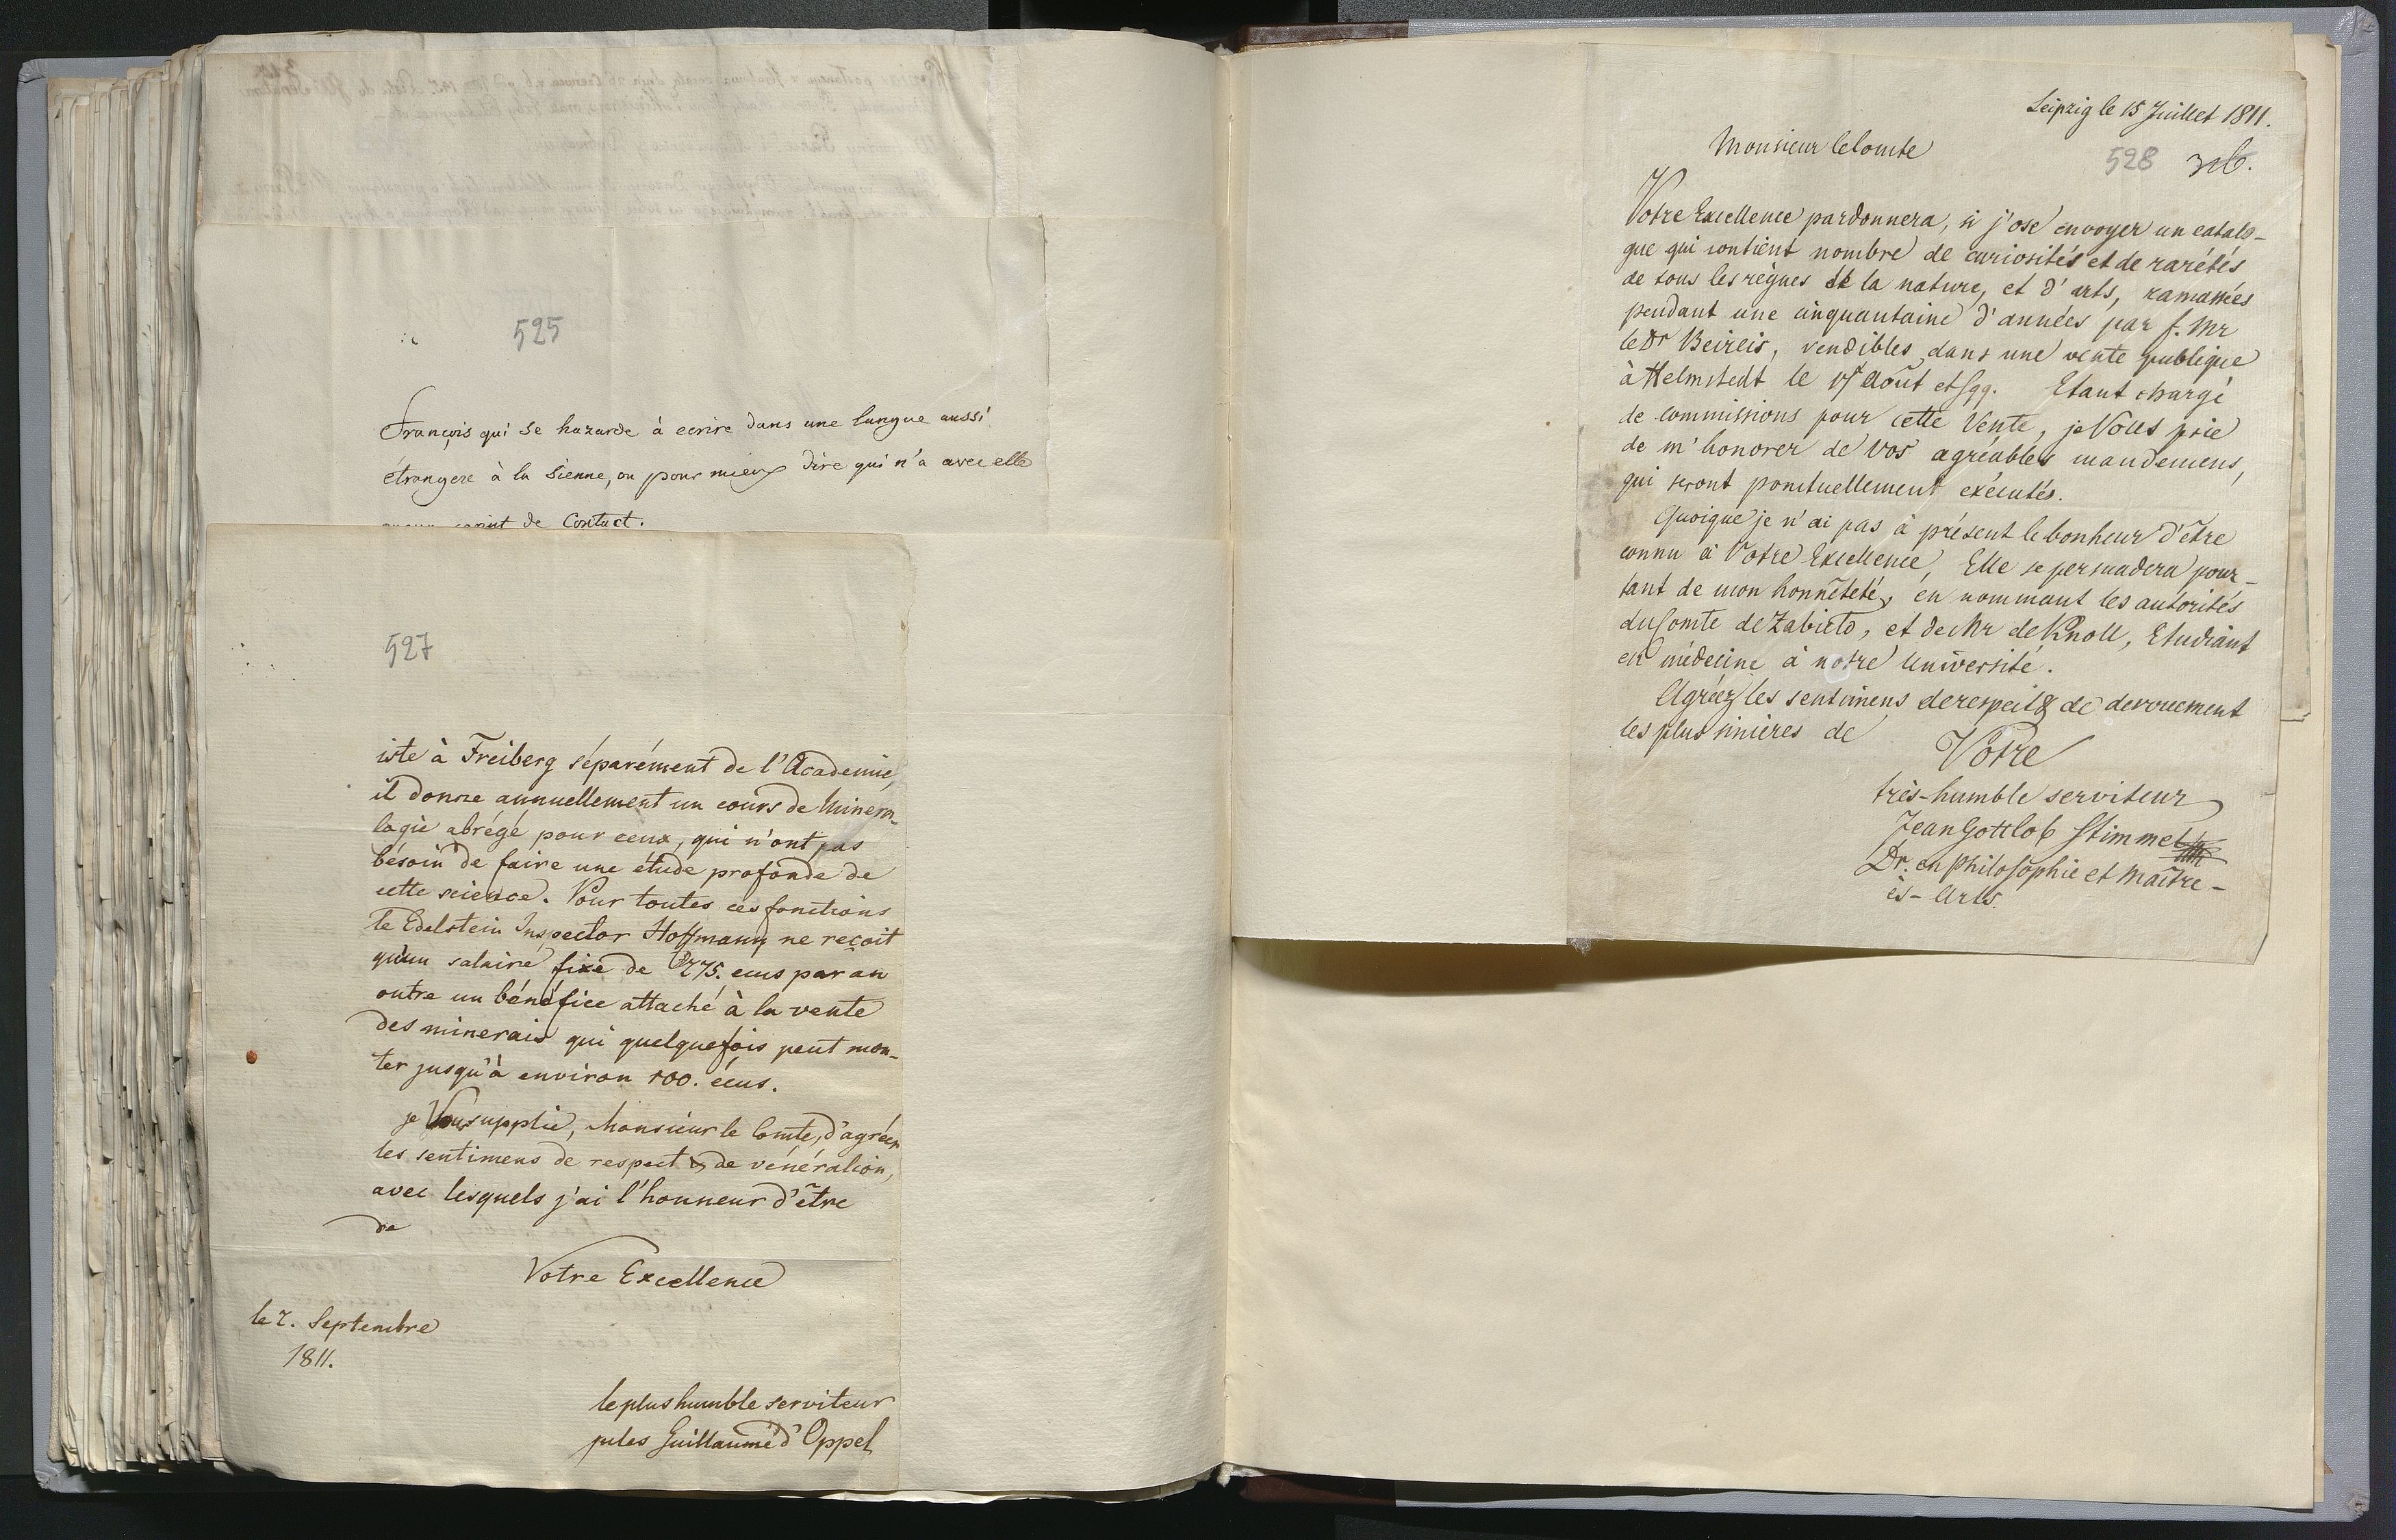 525
François qui se hazarde à ecrire dans une langue aussi
étrangere à la Sienne, ou pour mieux dire qui n'a avec elle
point de Contact.
527
iste à Freiberg séparément de l'Academie,
il donne annuellement un cours de Minera-
logie abrégé pour ceux, qui n'ont pas
bésoin de faire une étude profonde de
cette science. Pour toutes ces fonctions
le Edelstein Inspector Hoffmann ne reçoit
qu'un salaire fixe de 275. ecus par an
outre un bénéfice attaché à la vente
des minerais qui quelquefois peut mon-
ter jusqu'à environ 100. écus.
je Vous supplie, Monsieur le Comte, d'agréer
les sentimens de respect & de vénération,
avec lesquels j'ai l'honneur d'être
de
Votre Excellence
le 2. Septembre
1811.
le plus humble serviteur
jules Guillaume d'Oppel
Leipzig le 15 Juillet 1811.
Monsieur le Comte
528
Votre Excellence pardonnera, si j'ose envoyer un catalo-
gue qui contient nombre de curiosités et de rarétés
de tous les règnes de la nature, et d'arts, ramassées
pendant une cinquantaine d'années par f. Mr
le Dr Beireis, vendibles dans une vente publique
à Helmstedt le Août et sqq. Etant chargé
de commissions pour cette Vente, je Vous prie
de m'honorer de vos agréables mandemens,
qui seront ponctuellement exécutés.
Quoique je n'ai pas à présent le bonheur d'être
connu à Votre Excellence, Elle se persuadera pour-
tant de mon honnêteté, en nommant les autorités
du Comte de, et de Mr de Knoll, Etudiant
en médecine à notre Université.
Agréez les sentimens de respect & de devouement
les plus sincères de
Votre
très-humble serviteur
Jean Gottlob Stimmel
Dr. en Philosophie et Maître-
ès-Arts.